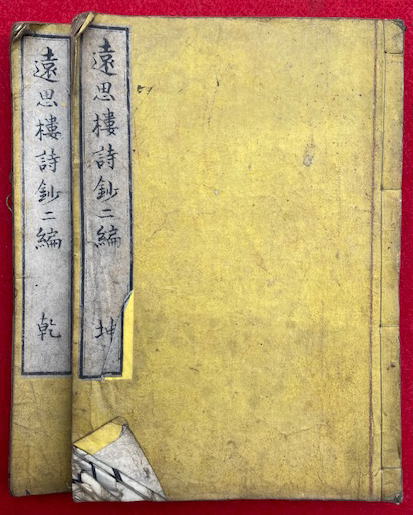 遠思樓詩鈔二編 坤
遠思樓詩鈔二編 乾